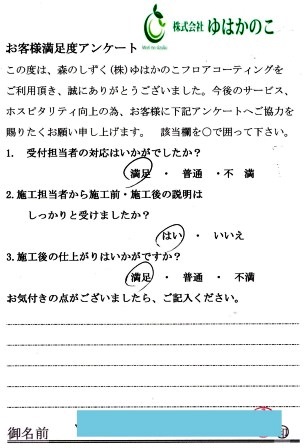 株式会社 ゆはかのこ
お客様満足度アンケート
この度は、森のしずく(株)ゆはかのこフロアコーティングを
ご利用頂き、誠にありがとうございました。今後のサービス、
ホスピタリティ向上の為、お客様に下記アンケートへご協力を
賜りたくお願い申し上げます。 該当欄を〇で囲って下さい。
1. 受付担当者の対応はいかがでしたか?
満足 ・ 普通 ・ 不満
2.施工担当者から施工前・施工後の説明は
しっかりと受けましたか?
はい ・ いいえ
3.施工後の仕上がりはいかがですか?
満足 ・ 普通 ・ 不満
お気付きの点がございましたら、ご記入ください。
御名前 ㊞